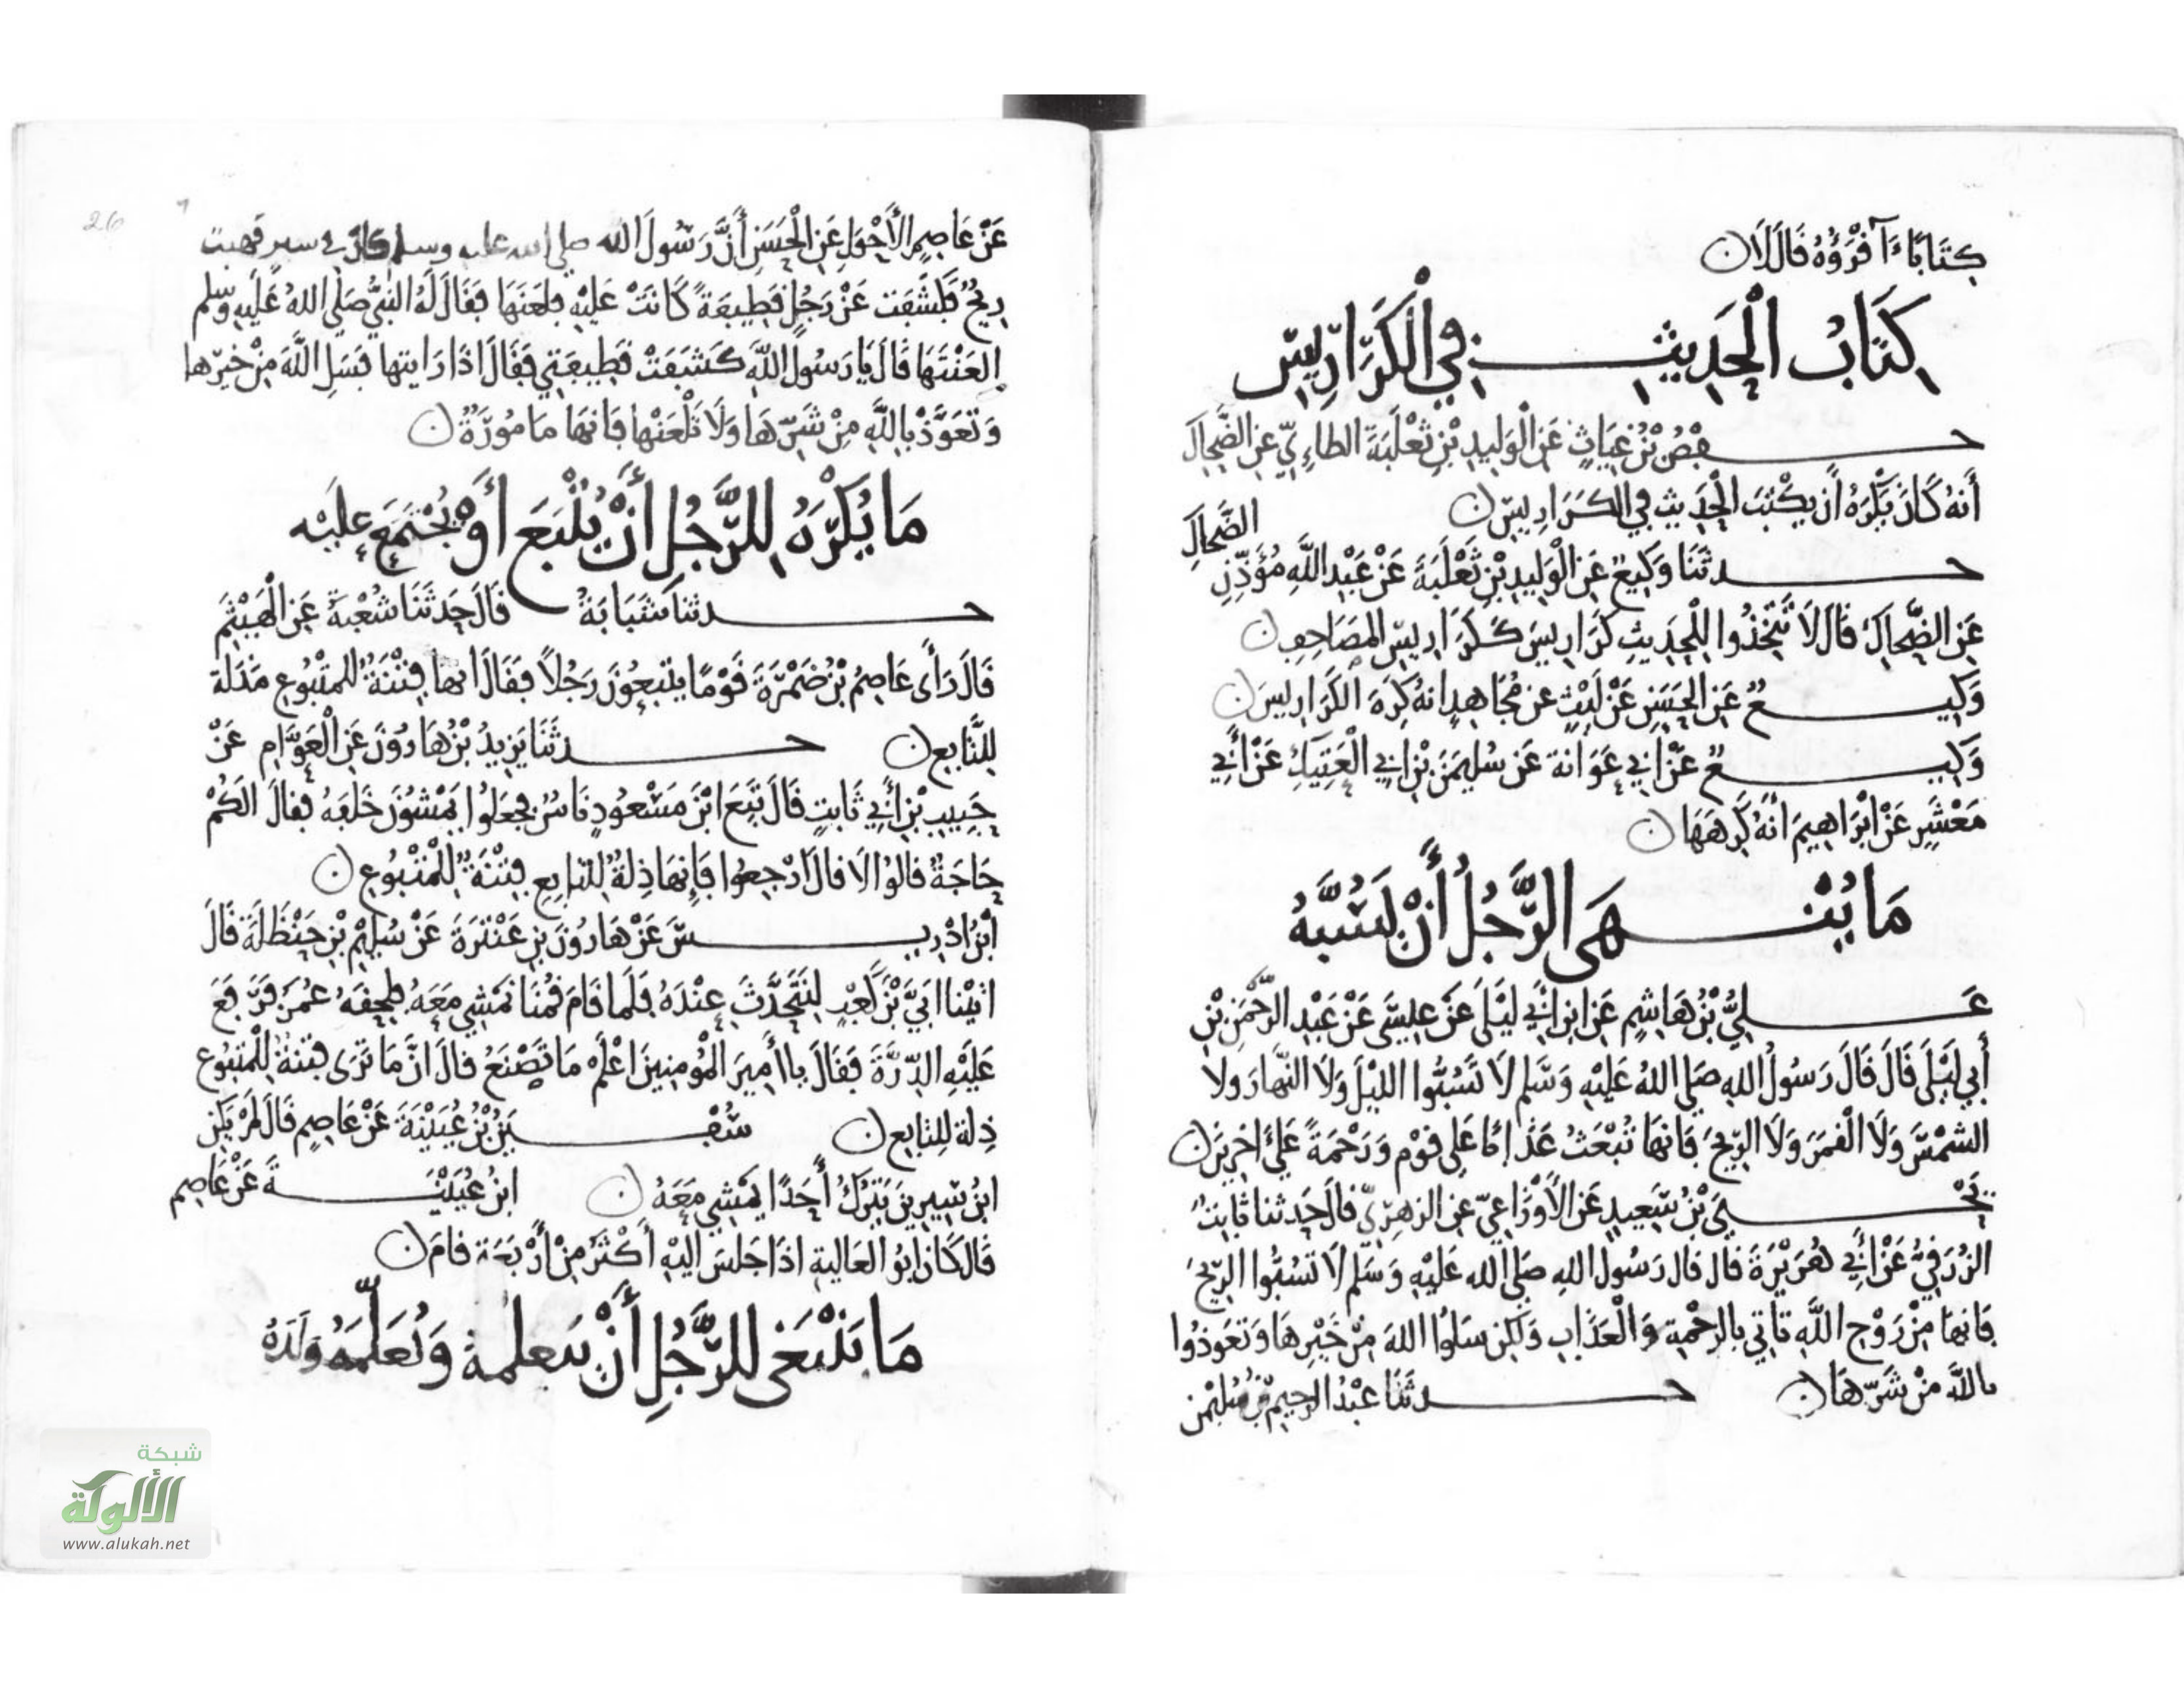 كِتَابًا ءَآقْرَؤُهُ قَالَ لَا
كِتَابُ الْحَدِيثِ فِي الْكَرَارِيسِ
حفْصُ بْنُ غِيَاثٍ عَنِ الْوَلِيدِ بْنِ ثَعْلَبَةَ الطاءِيِّ عَنِ الضَّحَّاكِ
أَنهُ كَانَ يَكْرَهُ أَن يكْتبَ الْحَدِيث فِي الكَرَارِيسِ
الضَّحَّاكِ
حدثَنَا وَكِيعٌ عَنِ الْوَلِيدِ بْنِ ثَعْلَبَةَ عَنْ عَبْدِ اللَّهِ مُؤَذِّنِ
عَنِ الضَّحاكِ قَالَ لَا تَتَّخِذُوا لِلْحَدِيثِ كَرَارِيسَ كَكَرَارِيسِ المصَاحِفِ
وَكِيعٌ عَنِ الحَسَنِ عَنْ لَيْثٍ عن مُجَاهِدٍ انهُ كَرِهَ الكَرَارِيسَ
وَكِيعٌ عَنْ ابِي عَوَانَة عَنْ سُلَيمٰنَ بْنِ ابِي الْعَتِيكِ عَنْ أَبِي
مَعْشَرٍ عَنْ ابْرَاهِيمَ أنهُ كَرِهَهَا
مَا يُنْهَى الرَّجُلُ أَنْ يَسُبَّهُ
عَلِيُّ بْنُ هَاشِمٍ عَنِ ابنِ ابِي لَيْلَى عَنْ عِيسَى عَنْ عَبْدِ الرَّحْمَنِ بْنِ
أَبِي لَيْلَى قَالَ قَالَ رَسُولُ اللهِ صَلى اللهُ عَلَيْهِ وَسَلم لَا تَسُبُّوا الليْلَ وَلَا النَّهارَ ولَا
الشمْسَ وَلَا الْقمَرَ وَلَا الرِّيحَ فَانهَا تُبْعَثُ عَذَابًا عَلى قَوْم وَرَحْمَةً عَلَى اخرِينَ
يَحْيَى بْنُ سَعِيدٍ عَنِ الأَوْزَاعِيّ عَنِ الزهْرِيِّ قالَ حَدثنا ثَابِتٌ
الزُرَقِيُّ عَنْ أَبِي هُرَيْرَةَ قال قال رَسُولُ اللهِ صَلَّى الله عَلَيْهِ وَسَلم لَا تَسُبُّوا الرِّيحَ
فَانهَا مِنْ رَوْحِ اللَّهِ تَاتِي بِالرحْمةِ وَالْعَذَابِ وَلكِن سَلُوا اللهَ مِنْ خَيْرِهَا وَتعَوذُوا
بِاللَّهِ مِنْ شَرِّهَا حدثَنَا عبْدُ الرحِيم بْنُ سُلَيْمٰن
عَنْ عَاصِمٍ الأَحْوَلِ عَنِ الْحَسَنِ أَنَّ رَسُولَ الله صلى الله عليه وسلم كان في سفر فهبت
رِيحٌ فَكَشَفَت عَنْ رَجُلٍ قطِيفَةً كَانَتْ عَلَيْهِ فلَعَنَهَا فَقَالَ لَهُ النبِيُّ صَلَّى اللهُ عَلَيهِ وسلم
العَنْتَهَا قالَ يَا رَسُولَ اللَّهِ كَشَفَتْ قَطِيفَتِي فَقَالَ اذَا رَايتهَا فسَلِ اللَّهَ مِنْ خيْرِها
وَتعَوَّذْ بِاللَّهِ مِنْ شَرِّهَا وَلَا تَلْعَنْها فَانهَا مَامُورَةٌ
مَا يُكْرَهُ لِلرَّجُلِ أَنْ يُتْبَعَ أَوْ يُجْتَمَعَ عَلَيْهِ
حدثنا شَبَابَةُ قَالَ حَدثَنَا شُعْبَةُ عَنِ الْهَيْثَمِ
قَالَ رَأَى عَاصِمُ بْنُ ضَمْرَةَ قَوْمًا يتْبعُونَ رَجُلاً فقَالَ انها فِتْنَةٌ للْمتْبُوعِ مَذَلة
لِلتَّابِعِ حدثَنَا يَزِيدُ بْنُ هَارُونَ عَنِ الْعَوَّامِ عَنْ
حَبِيبِ بْنِ أَبِي ثَابتٍ قَالَ تَبَعَ ابْنَ مَسْعُودٍ نَاسٌ فَجعَلُوا يَمْشُونَ خَلْفَهُ فقالَ الَكُمْ
حَاجَةٌ قالُوا لَا قالَ ارْجِعُوا فَإِنهَا ذِلةٌ لِلتابِعِ فِتْنَةٌ لِلْمَتْبُوعِ
ابْنُ ادْرِيسَ عَنْ هَارُونَ بنِ عَنْتَرَةَ عَنْ سُلَيْم بْنِ حَنْظَلَةَ قَالَ
اتَيْنا ابَيَّ بْنَ كَعْبٍ لِنَتَحَدَّثَ عِنْدَهُ فَلَما قَامَ قُمْنَا نَمْشِي مَعَهُ فلحِقَهُ عُمَرَ فَرَفَعَ
عَلَيْهِ الدِّرَّةَ فَقَالَ يا أَمِيرَ الْمُومِنِينَ اعْلَمْ مَا تَصْنَعُ قالَ انَّ مَا تَرَى فتنة لِلْمَتبُوع
ذِلة لِلتابِع سُفْيَن بْنُ عُيَيْنَةَ عَنْ عَاصِمٍ قَالَ لَمْ يَكنِ
ابنُ سِيرِينَ يَتْرُكُ أَحَدًا يَمْشِي مَعَهُ ابنُ عُيَيْنَةَ عَنْ عَاصِم
قَالَ كَانَ ابُو العَالِيةِ اذَا جَلسَ اليْهِ أَكْثَرُ مِنْ أَرْبَعَة قامَ
مَا يَنْبَغِي لِلرَّجُلِ أَنْ يتعلمهُ وَيُعَلِّمَهُ وَلَدَهُ
26
شبكة
الألوكة
www.alukah.net